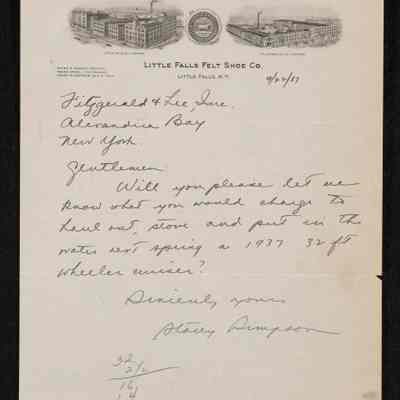 LITTLE FALLS FELT SHOE CO.
LITTLE FALLS, N.Y.
Fitzgerald & Lee, Inc.
Alexandria Bay
New York
Gentlemen
Will you please let me
know what you would charge to
haul out, store and put in the
water next spring a 1937 32 ft
wheeler cruiser?
Sincerely yours
Stacey Simpson
32
2 1/2
16